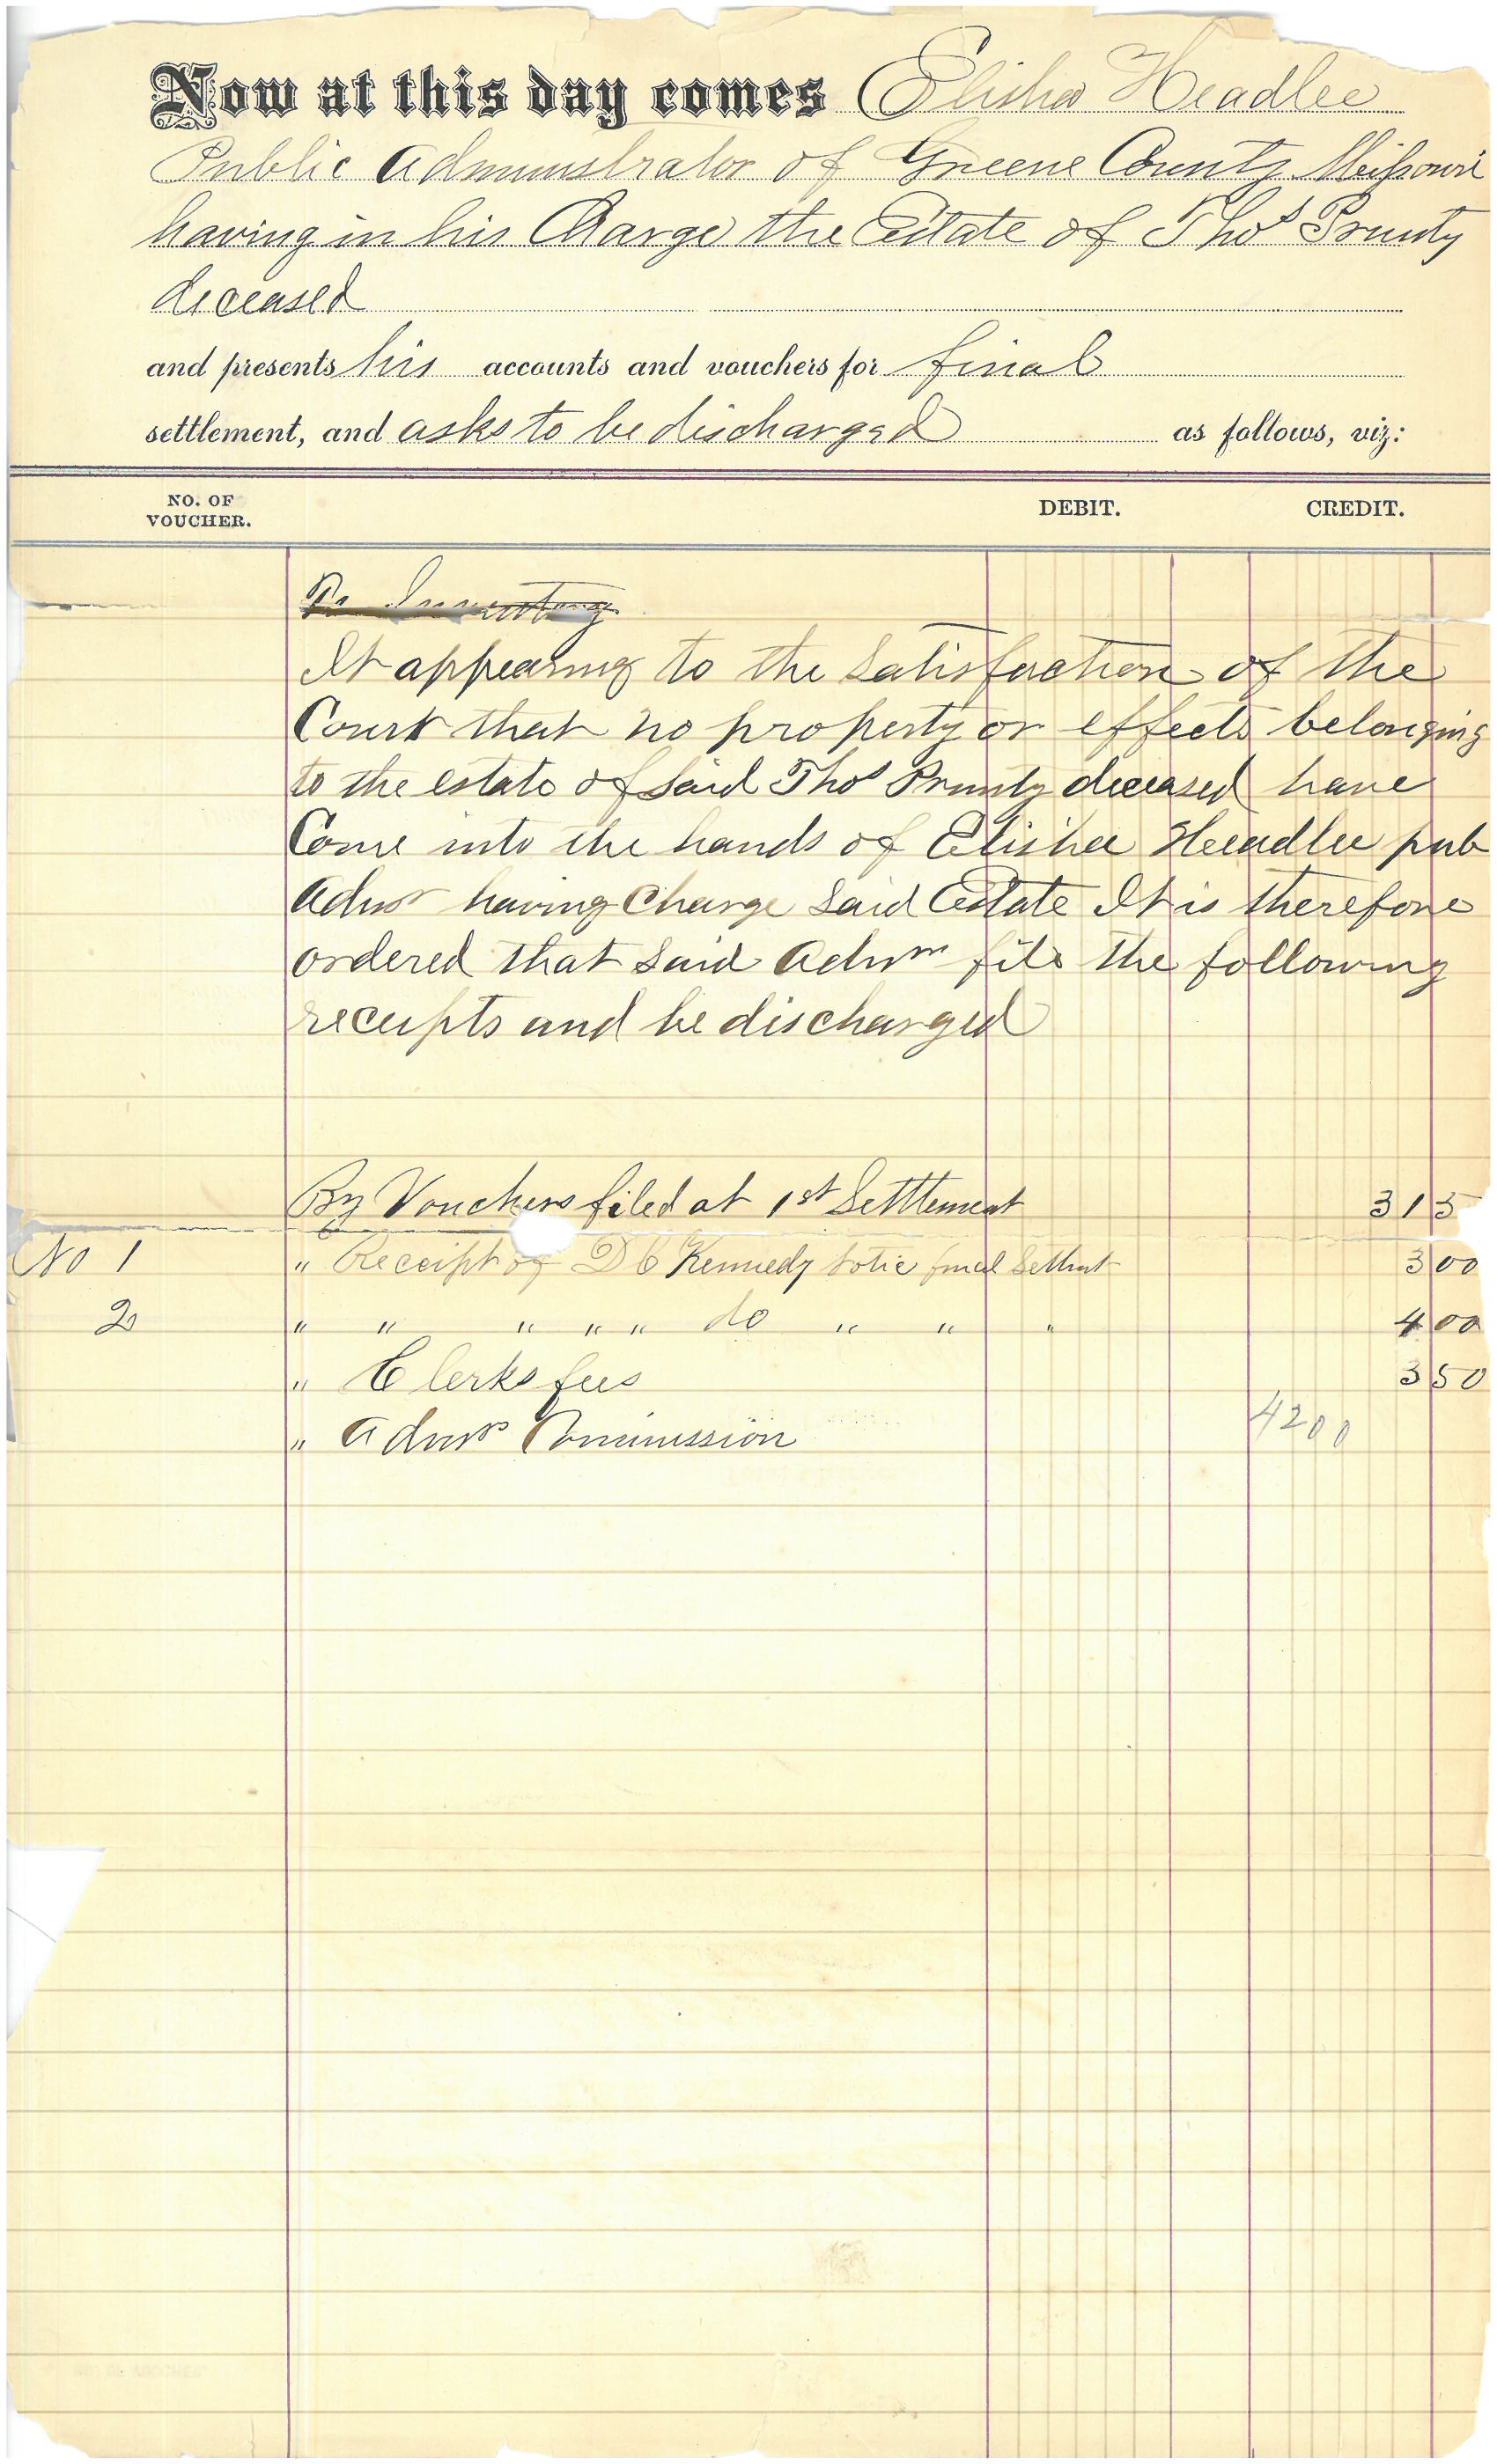 Now at this day comes Elisha Headlee
Public Administrator of Greene County Missouri
having in his Charge the Estate of Thos Prunty
deceased
and presents his accounts and vouchers for final
settlement, and asks to be discharged as follows, viz:
NO. OF VOUCHER. DEBIT. CREDIT.
To Inventory
It appearing to the Satisfaction of the
Court that no property or effects belonging
to the estate of Said Thos Prunty deceased have
Come into the hands of Elisha Headlee pub
Admr having Charge Said Estate It is therefore
ordered that Said Admr file the following
receipts and be discharged
By Vouchers filed at 1st Settlement 3 15
No 1 " Receipt of D C Kennedy final Settmt 3 00
2 " " " " " do " " " 4 00
" Clerks fees 3 50
" Admrs Commission 4200